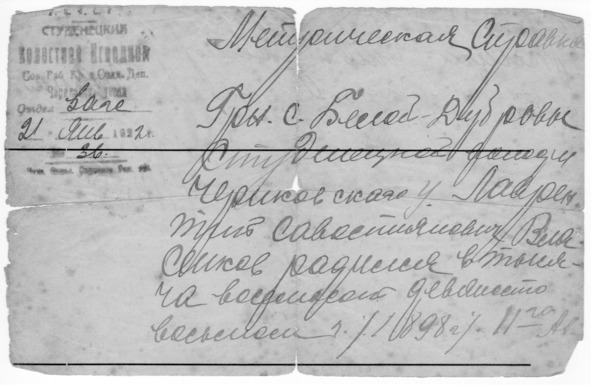 Р.С.Ф.С.Р.
СТУДЕНЕЦКИЙ
Волостной Исполком
Сов. Раб. Кр. и Солд. Деп.
Отдел Загс
21 Янв 1922 г.
№ 36.
Метрическая Справка
Грн. с. Белой-Дубровы
Студенецкой волости
Чериковскаго у. Лаврен.
тит Савостиянович Вла-
сенков радился в тыся-
ча восемсот девяносто
восьмом г. /1898 г/. 11го Ав